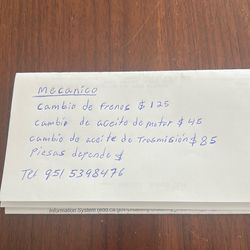 mecanico
cambio de frenos $125
cambio de aceite de motor $45
cambio de aceite de Trasmision $85
Piesas depende $
Tel 951 5398476
Information System (edd.ca.gov